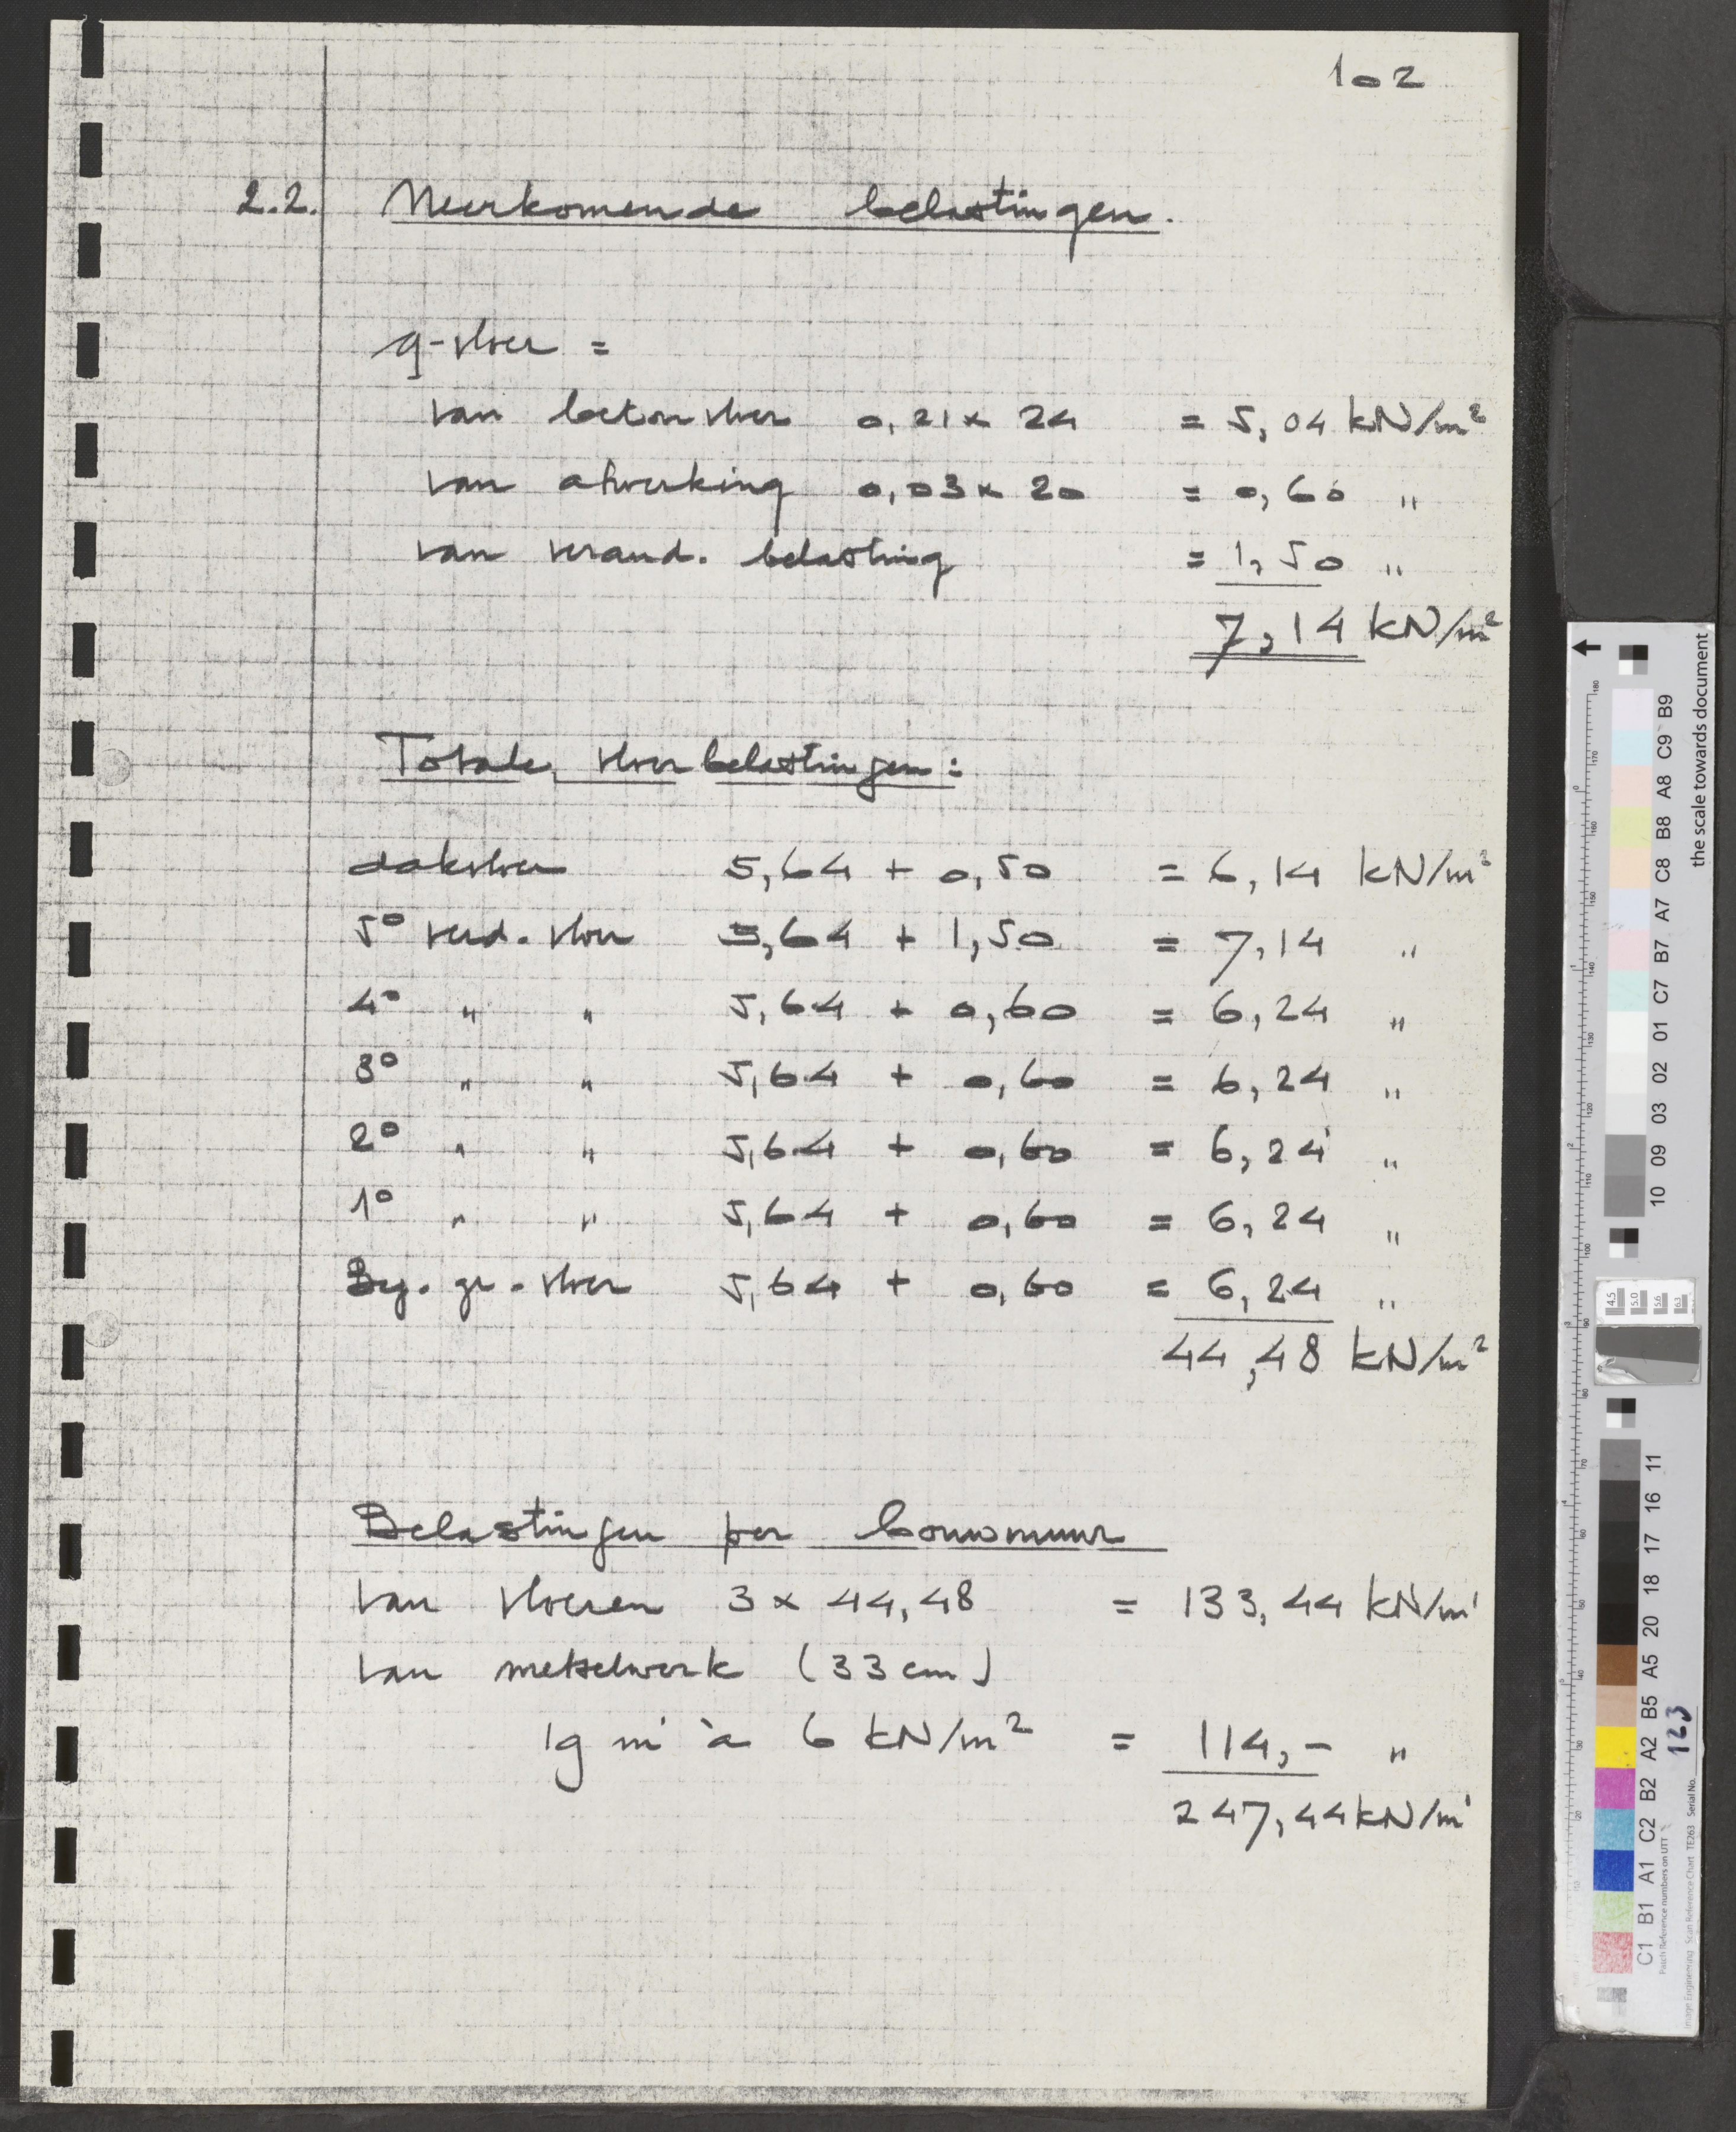 102
2.2. Neerkomende belastingen.
q-vloer =
van betonvloer 0,21 x 24 = 5,04 kN/m²
van afwerking 0,03 x 20 = 0,60 "
van verand. belasting = 1,50 "
7,14 kN/m²
Totale vloerbelastingen:
dakvloer 5,64 + 0,50 = 6,14 kN/m²
5° verd. vloer 5,64 + 1,50 = 7,14 "
4° " " 5,64 + 0,60 = 6,24 "
3° " " 5,64 + 0,60 = 6,24 "
2° " " 5,64 + 0,60 = 6,24 "
1° " " 5,64 + 0,60 = 6,24 "
Beg. gr. vloer 5,64 + 0,60 = 6,24 "
44,48 kN/m²
Belastingen per bouwmuur
van vloeren 3 x 44,48 = 133,44 kN/m'
van metselwerk (33 cm)
19 m' à 6 kN/m² = 114,- "
247,44 kN/m'
the scale towards document
C1 B1 A1 C2 B2 A2 B5 A5 20 18 17 16 11
10 09 03 02 01 C7 B7 A7 C8 B8 A8 C9 B9
4.5 5.0 5.6 6.3
Patch Reference numbers on UTT
Image Engineering Scan Reference Chart TE263 Serial No. 123